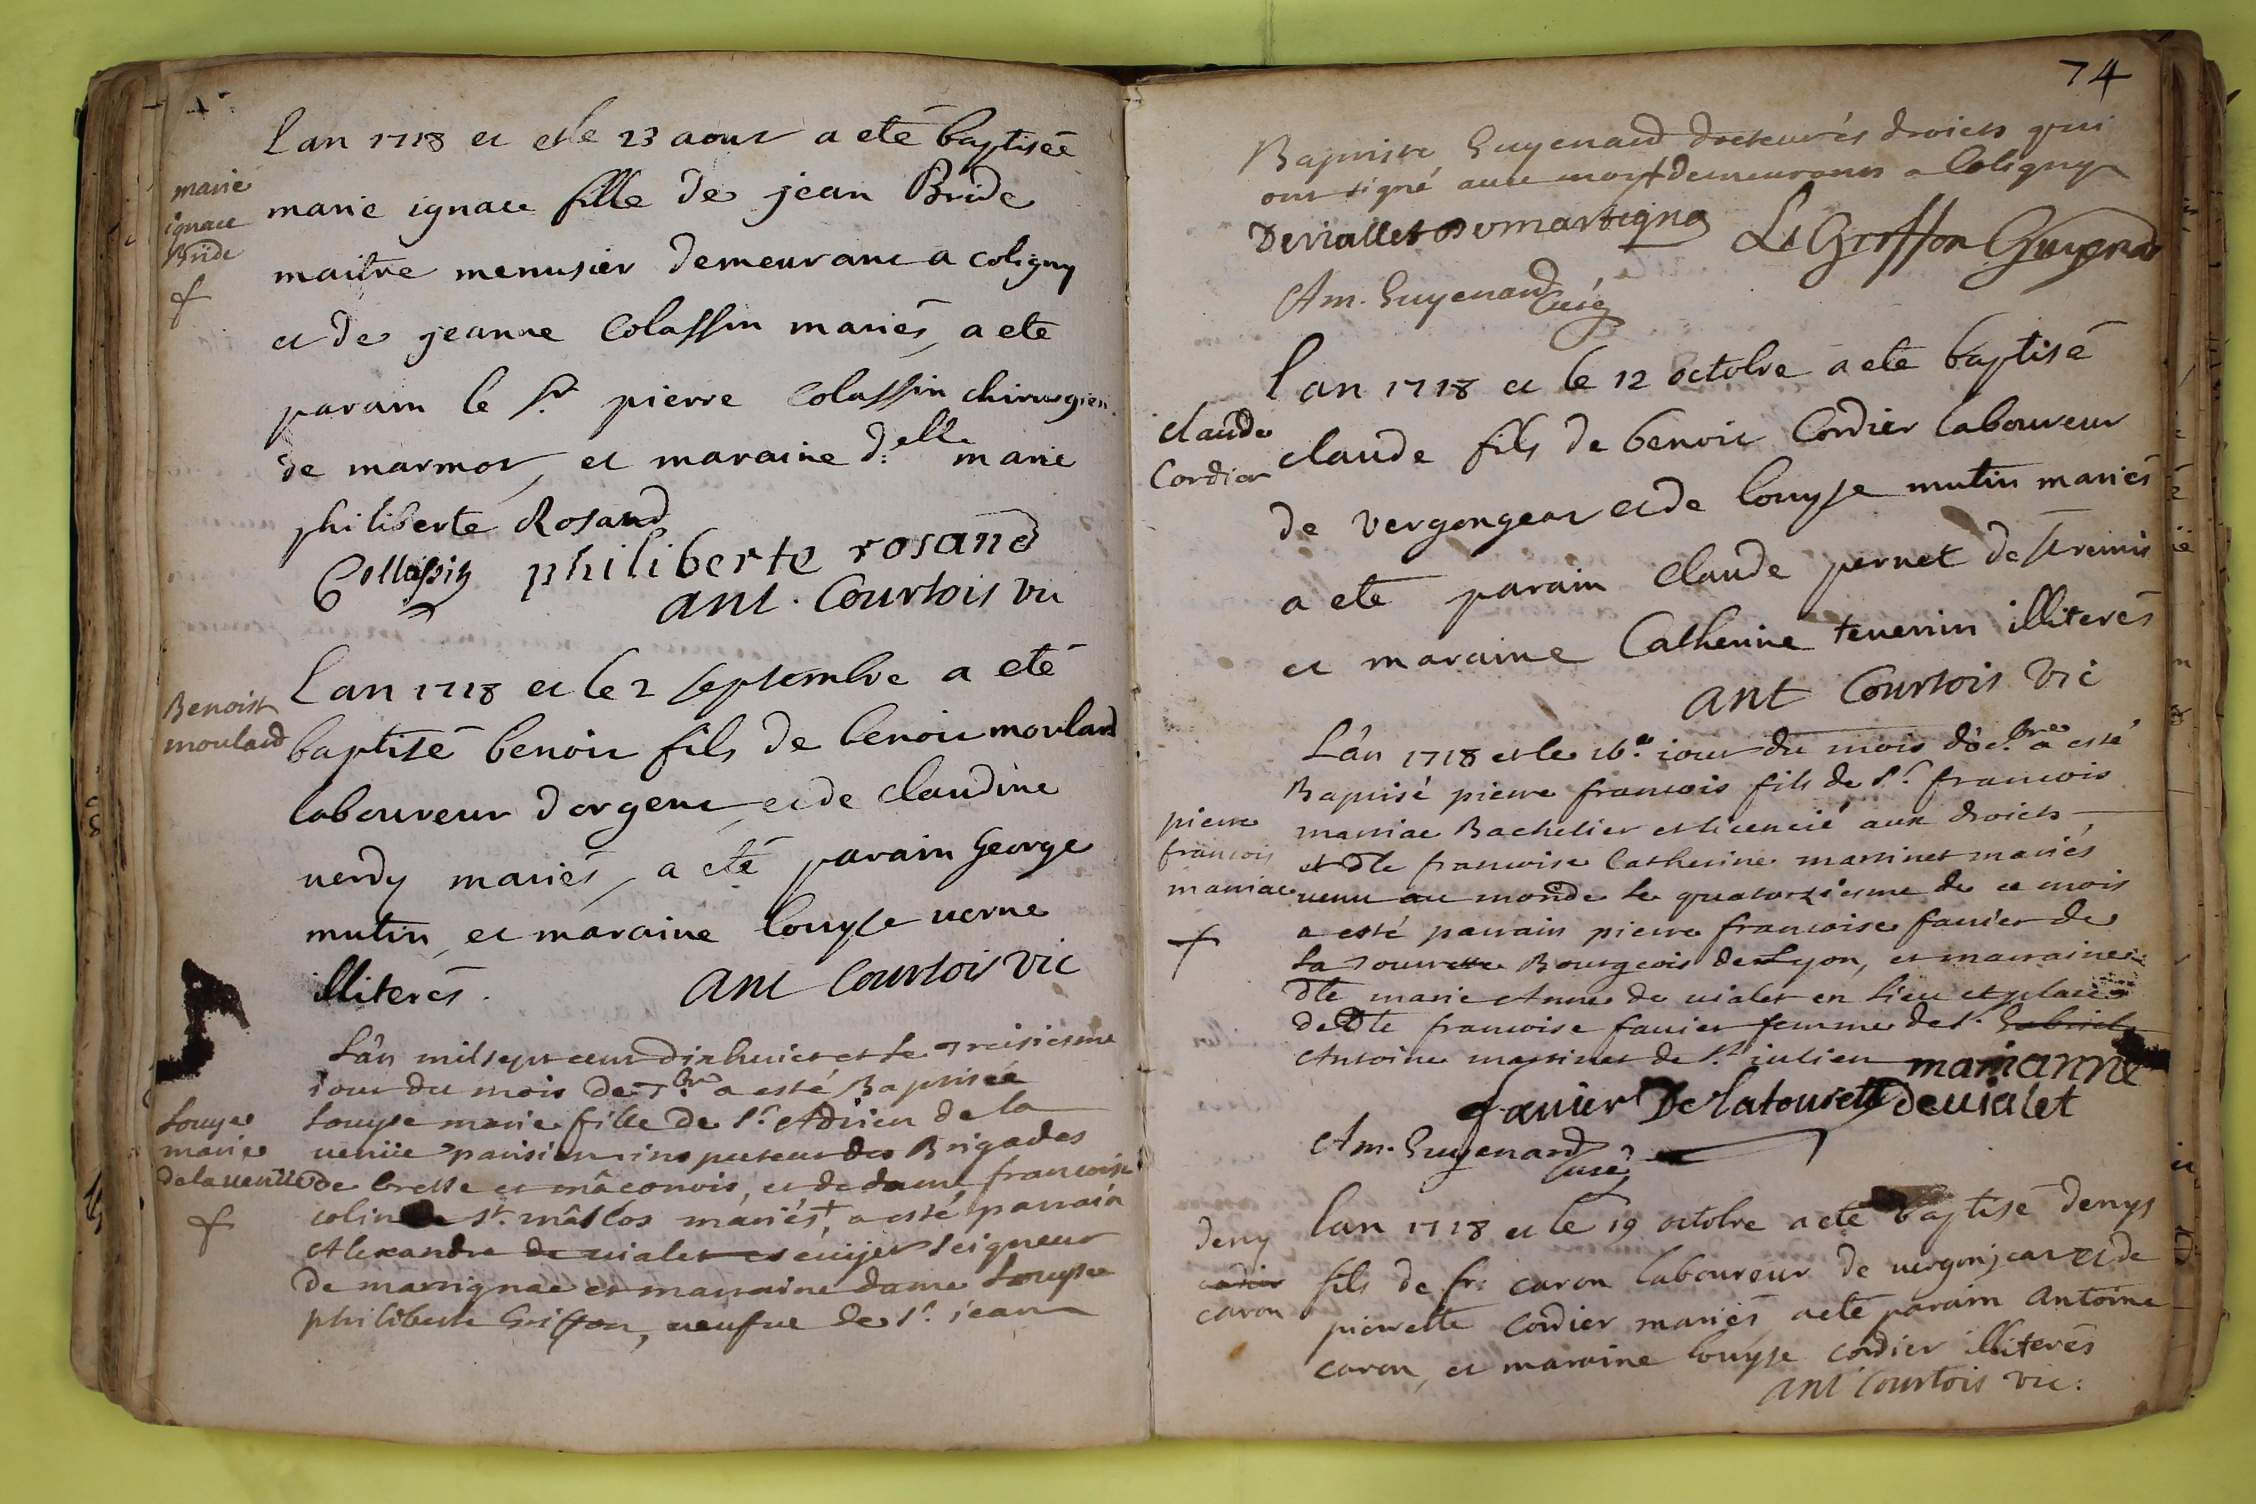 marie
ignace
Bride
Lan 1718 et et le 23 aout a eté baptiseé
marie ignace fille de jean Bride
maitre menusier demeurant a coligny
et de jeanne Colassin mariés, a eté
parain le Sr pierre Colassin chirurgien
de marmos, et maraine d.elle marie
philiberte Rosand
Collassin philiberte rosand
ant. Courtois vic
Benoist
moulard
Lan 1718 et le 2 septembre a eté
baptisé benoit fils de benoit moulard
laboureur dorgent, et de claudine
verdy mariés, a eté parain George
mutin, et maraine louyse verne
illiterés. ant Courtois vic
Louyse
marie
de la venüe
Lân mil sept cent dix huict et le treisiesme
iour du mois de 7.bre a esté Baptisée
Louyse marie fille de Sr. Adrien de la
venüe parisien inspecteur des Brigades
de bresse et mâconois, et de dame francoise
colin St. mâslos mariés +, a esté parrain
Alexandre de vialet escuijer seigneur
de marsignac et marraine dame Louyse
philiberte Griffon, veufve de Sr. jean
74
Baptiste Guyenard docteur és droicts qui
ont signé avec moy + demeurants a Coligny
Deviallet Demartigna L Griffon Guyenard
Am. Guyenard Curé
claude
Cordier
Lan 1718 et le 12 octobre a eté baptisé
claude fils de benoit Cordier laboureur
de vergongeat et de louyse mutin mariés
a eté parain claude pernet de St remis
et maraine Catherine tevenin illiterés
ant Courtois vic
pierre
francois
marriac
Lân 1718 et le 16.e iour du mois d'oc.bre a esté
Baptisé pierre francois fils de Sr. francois
marriac Bachelier et licencié aux droicts,
et dlle francoise Catherine martinet mariés
venu au monde le quatorziesme de ce mois
a esté parrain pierre francoise favier de
la tourette Bourgeois de Lyon, et marraine
dlle marie Anne de vialet en lieu et place
de dlle francoise favier femme de Sr. Gabriel
Antoine martinet de St iulien marianne
favier De latourette devialet
Am. Guyenard curé
deny
cordier
caron
Lan 1718 et le 19 octobre a eté baptisé denys
fils de fr: caron laboureur de vergonjeat et de
pierrette cordier mariés a eté parain antoine
caron, et maraine louyse cordier illiterés
ant Courtois vic: